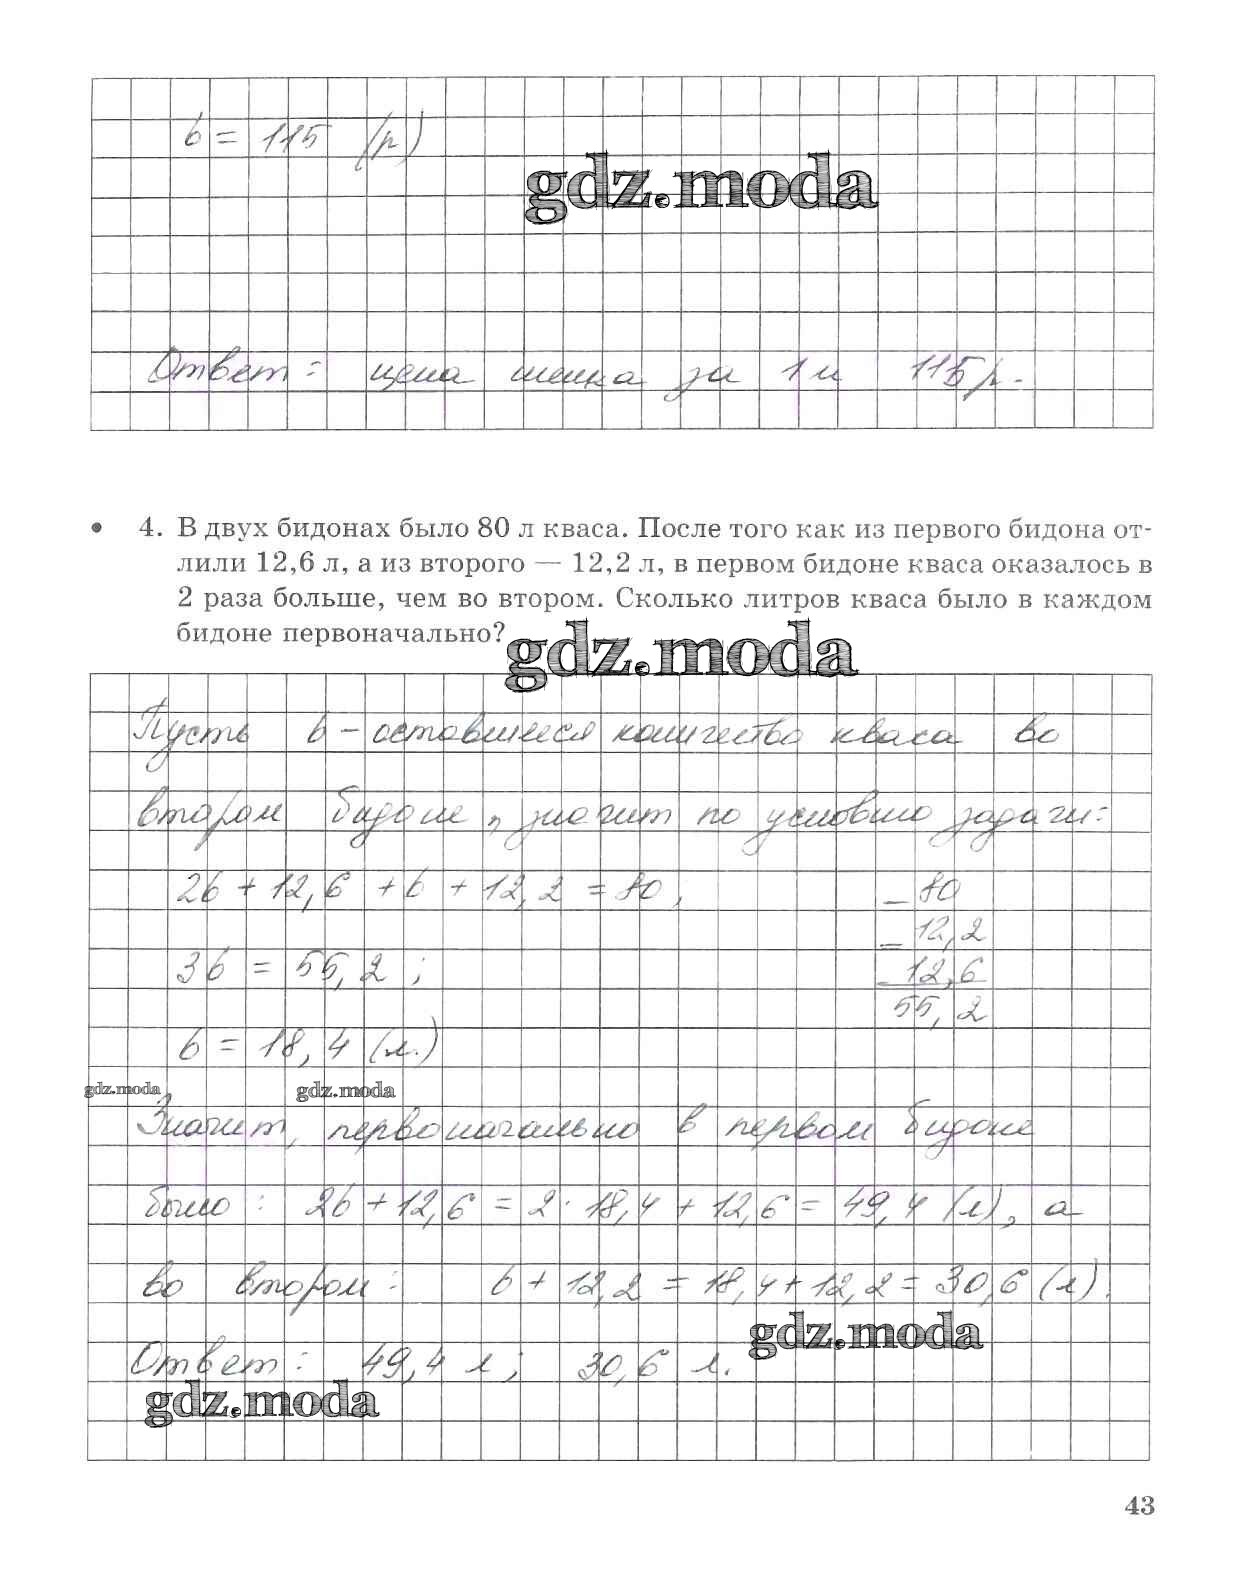 b = 115 (р)
gdz.moda
Ответ: цена шелка за 1 м 115 р.
• 4. В двух бидонах было 80 л кваса. После того как из первого бидона от-
лили 12,6 л, а из второго — 12,2 л, в первом бидоне кваса оказалось в
2 раза больше, чем во втором. Сколько литров кваса было в каждом
бидоне первоначально?
gdz.moda
Пусть b - оставшееся количество кваса во
втором бидоне, значит по условию задачи:
2b + 12,6 + b + 12,2 = 80,
3b = 55,2 ;
b = 18,4 (л.)
− 80
− 12,2
12,6
55,2
gdz.moda gdz.moda
Значит, первоначально в первом бидоне
было: 2b + 12,6 = 2 · 18,4 + 12,6 = 49,4 (л), а
во втором: b + 12,2 = 18,4 + 12,2 = 30,6 (л).
gdz.moda
Ответ: 49,4 л; 30,6 л.
gdz.moda
43